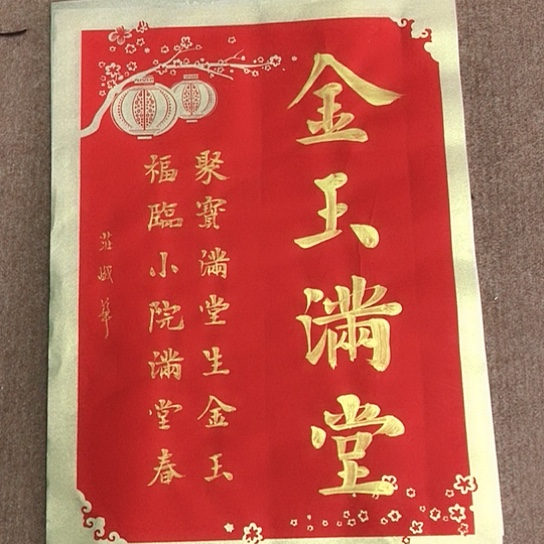 金玉滿堂
聚寶滿堂生金玉
福臨小院滿堂春